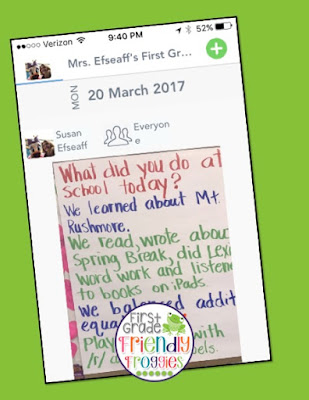 Verizon 9:40 PM 52%
Mrs. Efseaff's First Gr...
MON 20 March 2017
Susan Efseaff
Everyone
What did you do at
School today?
We learned about Mt.
Rushmore.
We read, wrote about
Spring Break, did Lexi
word work and listene
to books on iPads.
We balanced addit
equa
Play with
/r/ a els.
First
Grade
Friendly
Froggies